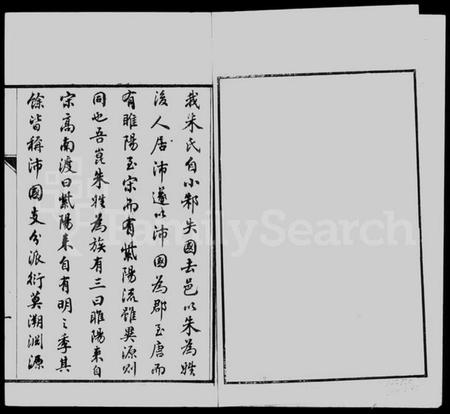 我朱氏自小邾失國去邑以朱為姓
後人居沛遂以沛國為郡至唐而
有睢陽至宋而有紫陽流雖異源則
同也吾崑朱姓為族有三曰睢陽來自
宋高南渡曰紫陽來自有明之季其
餘皆稱沛國支分派衍莫溯淵源
FamilySearch